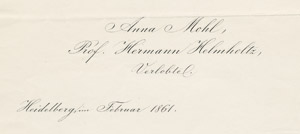 Anna Mohl,
Prof. Hermann Helmholtz,
Verlobte.
Heidelberg, im Februar 1861.